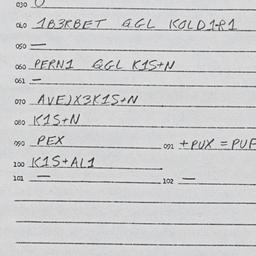 030
040 1B3RBET GGL KOLD1-R1
050 —
060 PERN1 GGL K1S+N
061 —
070 AVE)X3K1S+N
080 K1S+N
090 PEX 091 +PUX = PUF
100 K1S+AL1
101 — 102 —